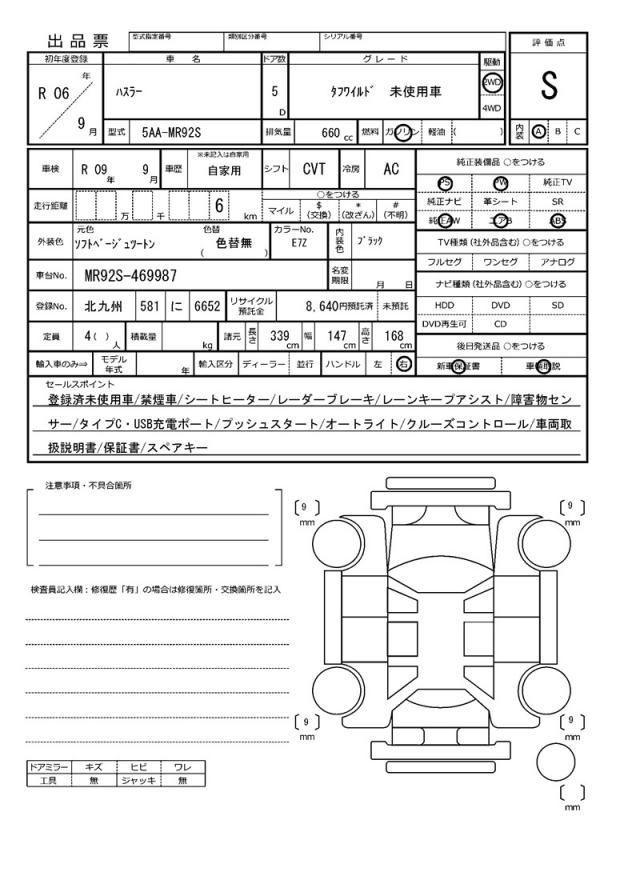 出品票 型式指定番号 類別区分番号 シリアル番号
評価点
S
内装 A B C
初年度登録 車名 ドア数 グレード 駆動
R 06 年 9 月 ハスラー 5 D タフワイルド 未使用車 2WD 4WD
型式 5AA-MR92S 排気量 660 cc 燃料 ガソリン 軽油 ( )
車検 R 09 年 9 月 車歴 ※未記入は自家用 自家用 シフト CVT 冷房 AC
走行距離 万 千 6 km ○をつける
マイル $ (交換) * (改ざん) # (不明)
外装色 元色 ソフトベージュツートン 色替 ( 色替無 ) カラーNo. E7Z 内装色 ブラック
車台No. MR92S-469987 名変期限 月 日
登録No. 北九州 581 に 6652 リサイクル預託金 8,640円預託済 未預託
定員 4( ) 人 積載量 kg 諸元 長さ 339 cm 幅 147 cm 高さ 168 cm
輸入車のみ⇒ モデル年式 年 輸入区分 ディーラー 並行 ハンドル 左 右
純正装備品 ○をつける
PS PW 純正TV
純正ナビ 革シート SR
純正AW エアB ABS
TV種類 (社外品含む) ○をつける
フルセグ ワンセグ アナログ
ナビ種類 (社外品含む) ○をつける
HDD DVD SD
DVD再生可 CD
後日発送品 ○をつける
新車保証書 車輌取説
セールスポイント
登録済未使用車/禁煙車/シートヒーター/レーダーブレーキ/レーンキープアシスト/障害物セン
サー/タイプC・USB充電ポート/プッシュスタート/オートライト/クルーズコントロール/車両取
扱説明書/保証書/スペアキー
注意事項・不具合箇所
検査員記入欄：修復歴「有」の場合は修復箇所・交換箇所を記入
ドアミラー キズ ヒビ ワレ
工具 無 ジャッキ 無
[ 9 ] mm
[ 9 ] mm
[ 9 ] mm
[ 9 ] mm
[ ] mm